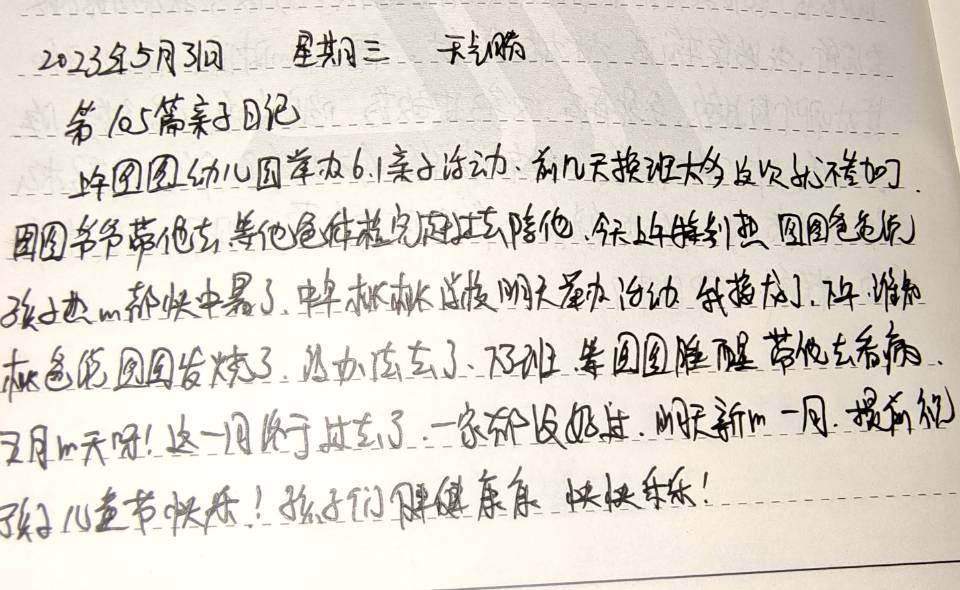 2023年5月31日 星期三 天气晴
第105篇亲子日记
上午图图幼儿园举办6.1亲子活动、前几天换班太多这次就不参加了.
图图爷爷带他去,等他爸体检完赶过去陪他.今天上午特别热 图图爸爸说
孩子热的都快中暑了.中午桃桃学校明天举办活动 我接龙了.下午.谁知
桃爸说图图发烧了.没办法去了、下了班 等图图睡醒带他去看病.
五月的天呀!这一月终于过去了.一家都没好过.明天新的一月.提前祝
孩子儿童节快乐!孩子们健健康康 快快乐乐!